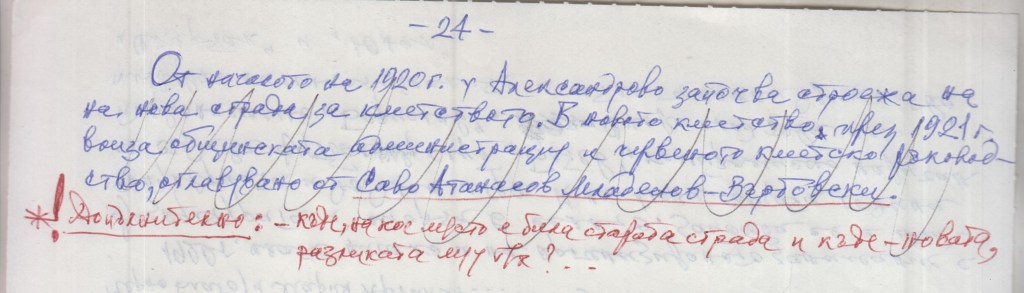 - 24 -
От началото на 1920 г. у Александрово започва строежа на
на нова сграда за кметството. В новото кметство, през 1921 г.
влиза общинската администрация и червеното кметско ръковод-
ство, оглавявано от Саво Атанасов Младенов-Върбовски.
*! Допълнително: - къде, на кое място е била старата сграда и къде - новата,
разликата м/у тях? ...